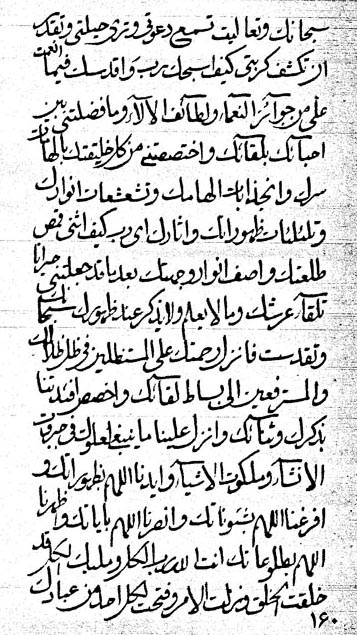 سبحانك وتعاليت تسمع دعوتي وترى حيلتي وتقدر
ان تكشف كربتي كيف اسبحك يا رب واقدسك فيما انعمت
علي من جوآئز النعمآء ولطائف الالآء وما فضلتني بين
احبآئك بلقآئك واختصصتني من كل خليقتك بالهامات
سرك وانجذابات الهامك وتشعشعات انوارك
وتلئلئات ظهوراتك واثارك اي رب كيف اثني قمص
طلعتك واصف انوار وجهتك بعد ما قد جعلتني حيرانا
تلقآء عرشك وما لا يعلم ولا يذكر عند ظهورك سبحانك
وتقدست فانزل رحمتك على المستظلين في ظل ظلالك
والمسترفعين الى بساط لقآئك واخصص افئدتنا
بذكرك وثنآئك وانزل علينا ما ينبغي لعلوك في جبروت
الانشآء وملكوت الاشيآء وايدنا اللهم بظهوراتك و
افرغنا اللهم بشئوناتك وانصرنا اللهم باياتك واظهرنا
اللهم بطلوعاتك انت الله رب الكل ومليك الكل قد
خلقت الخلق ونزلت الامر وفتحت لكل احد من عبادك
١٦٠